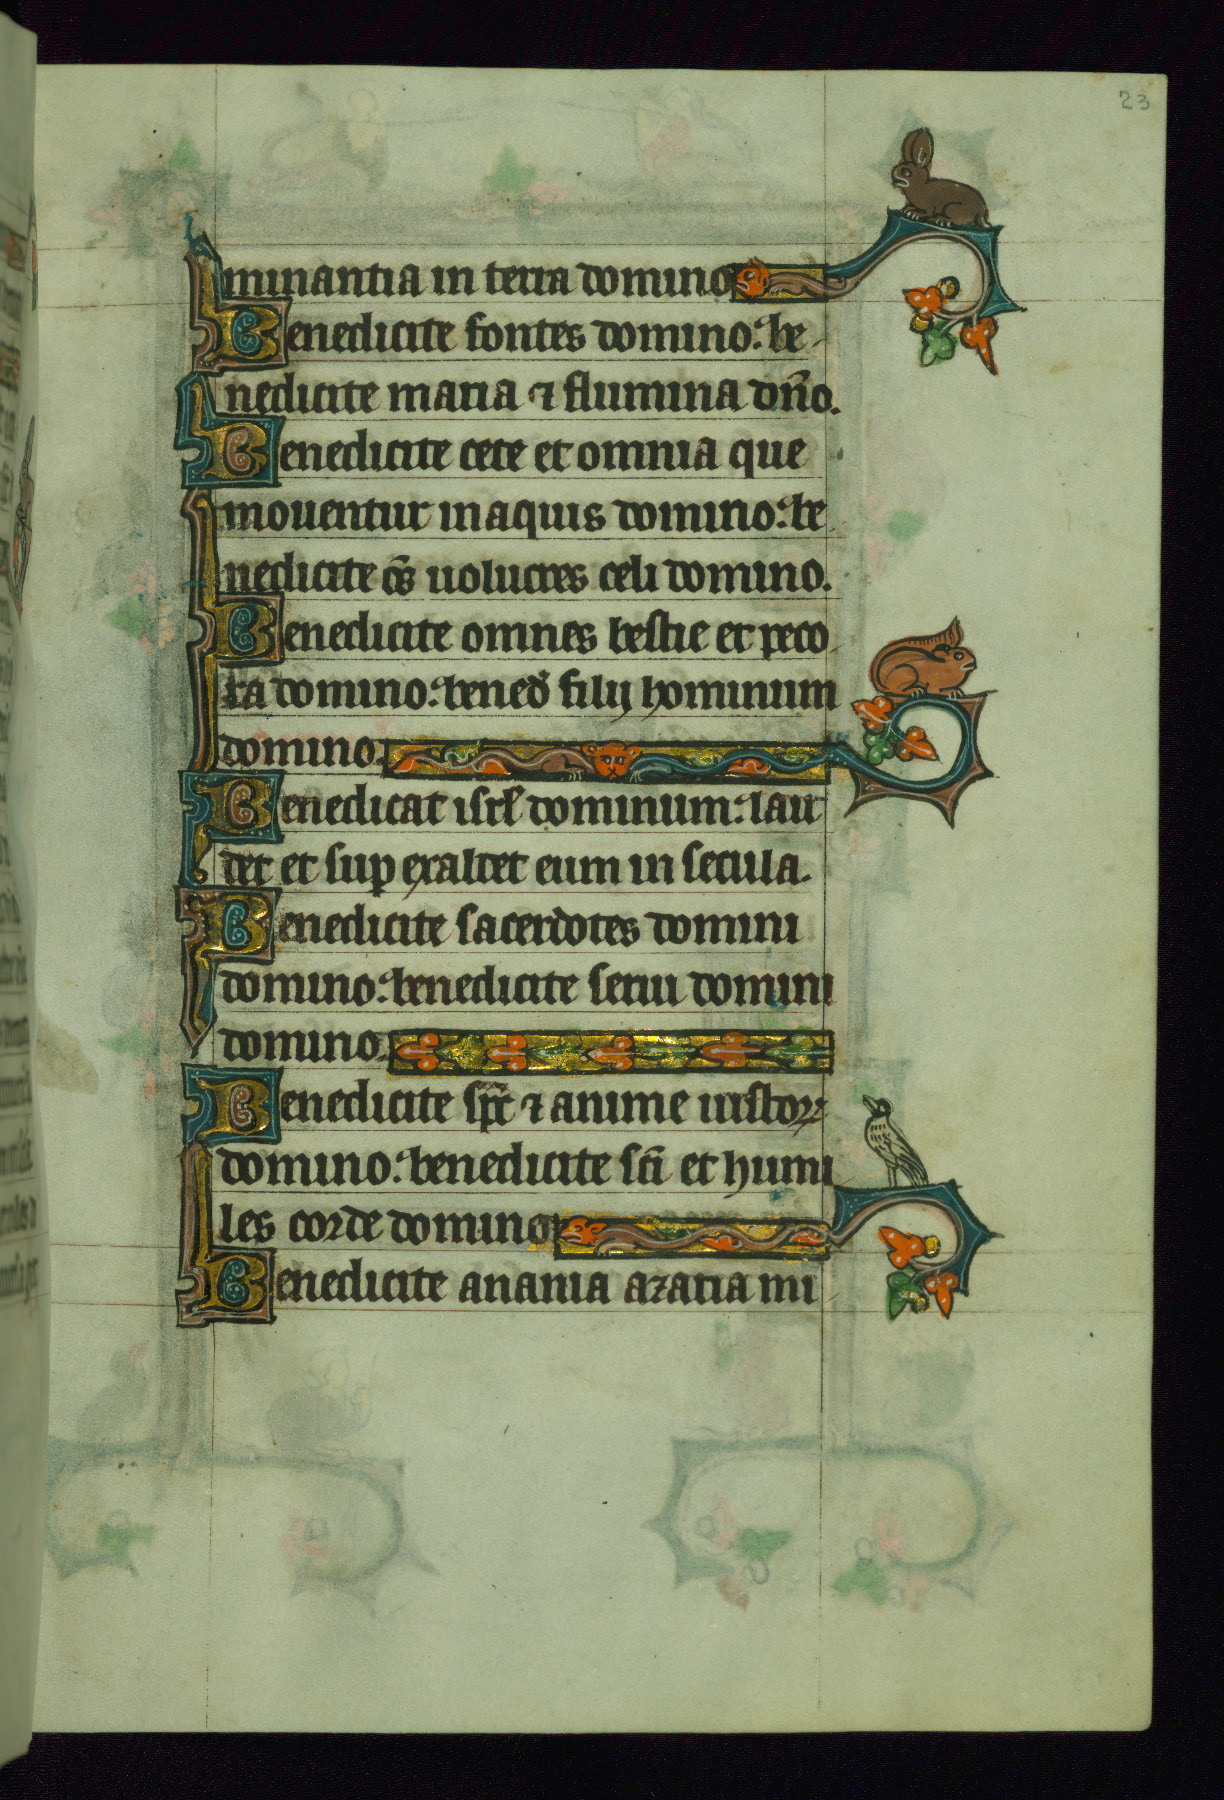 23
minantia in terra domino
Benedicite fontes domino: be
nedicite maria ⁊ flumina dño.
Benedicite cete et omnia que
mouentur in aquis domino: be
nedicite oῖs uolucres celi domino.
Benedicite omnes bestie et peco
ra domino: bened̄ filij hominum
domino.
Benedicat isrl̄ dominum: lau
det et sup exaltet eum in secula.
Benedicite sacerdotes domini
domino: benedicite serui domini
domino.
Benedicite spc̄ ⁊ anime iustoꝝ
domino: benedicite sc̄i et humi
les corde domino
Benedicite anania azaria mi